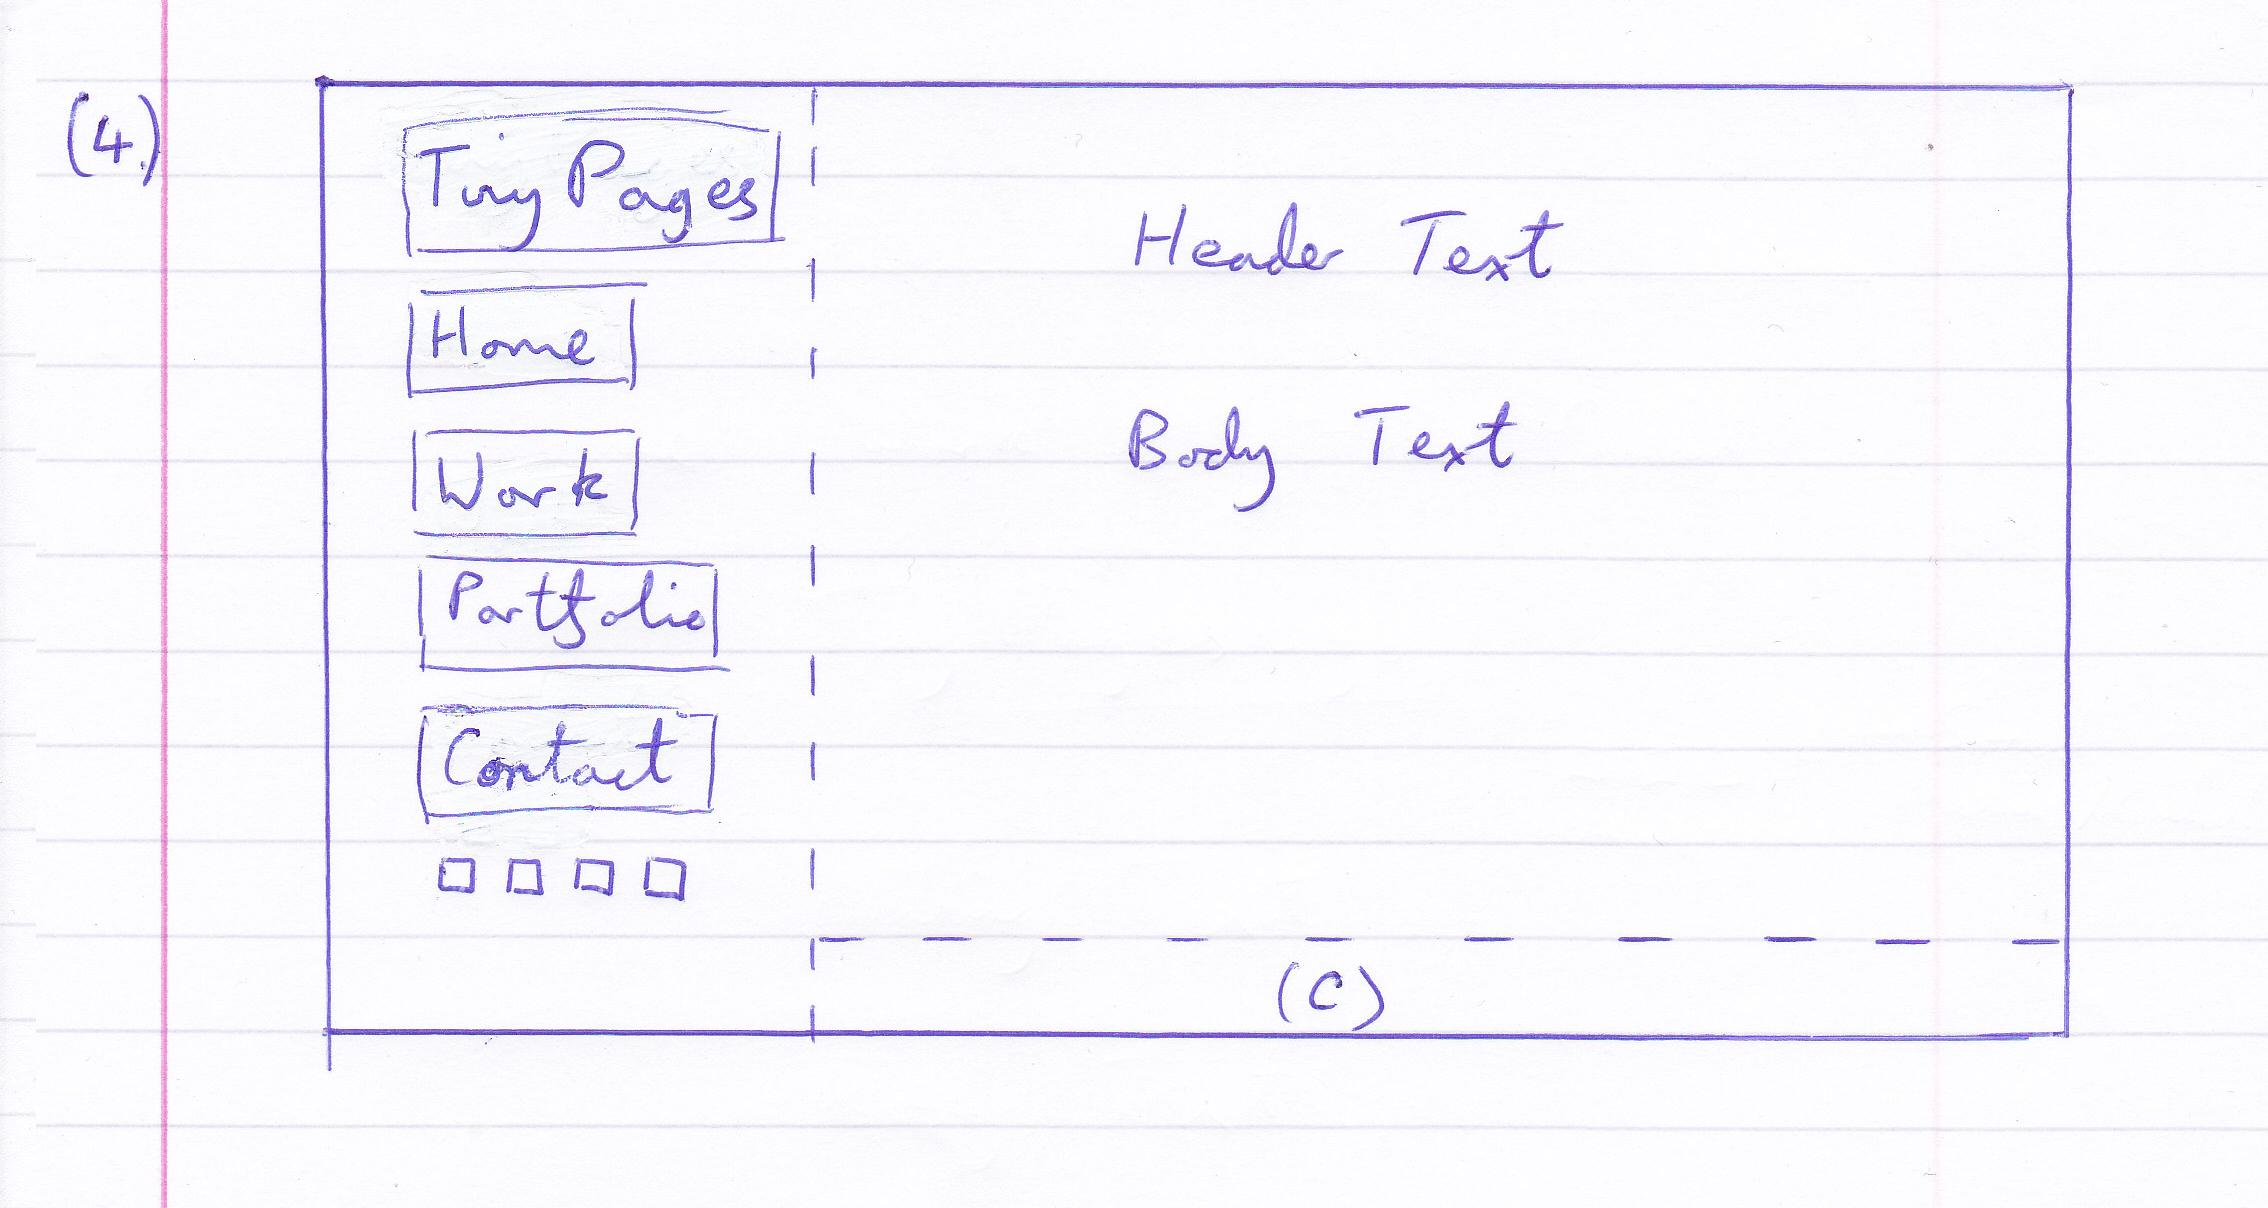 (4.)
Tiny Pages
Home
Work
Portfolio
Contact
Header Text
Body Text
(C)